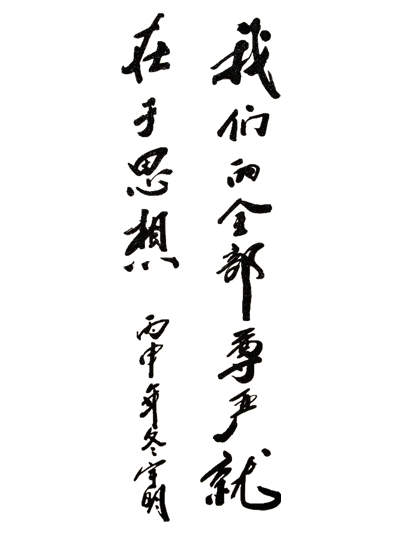 我们的全部尊严就
在于思想
丙申年冬宇明